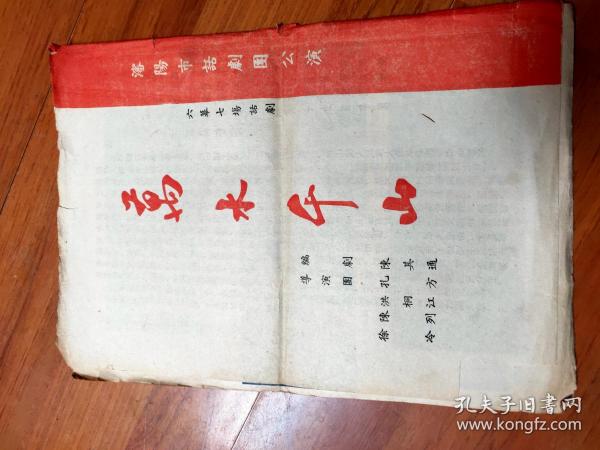 瀋陽市話劇團公演
六幕七場話劇
萬水千山
編劇 陳其通
導演團 孔方
洪桐江
陳列
徐冷
孔夫子旧书网
www.kongfz.com